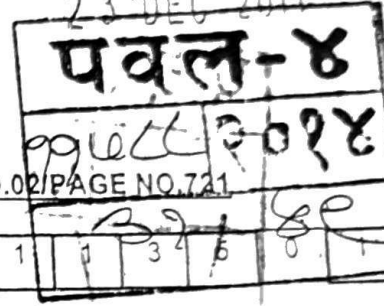 23 DEC
पवल-४
११७८८ २०१४
.02/PAGE NO.721
३२/४९
1 1 3 5 0 1